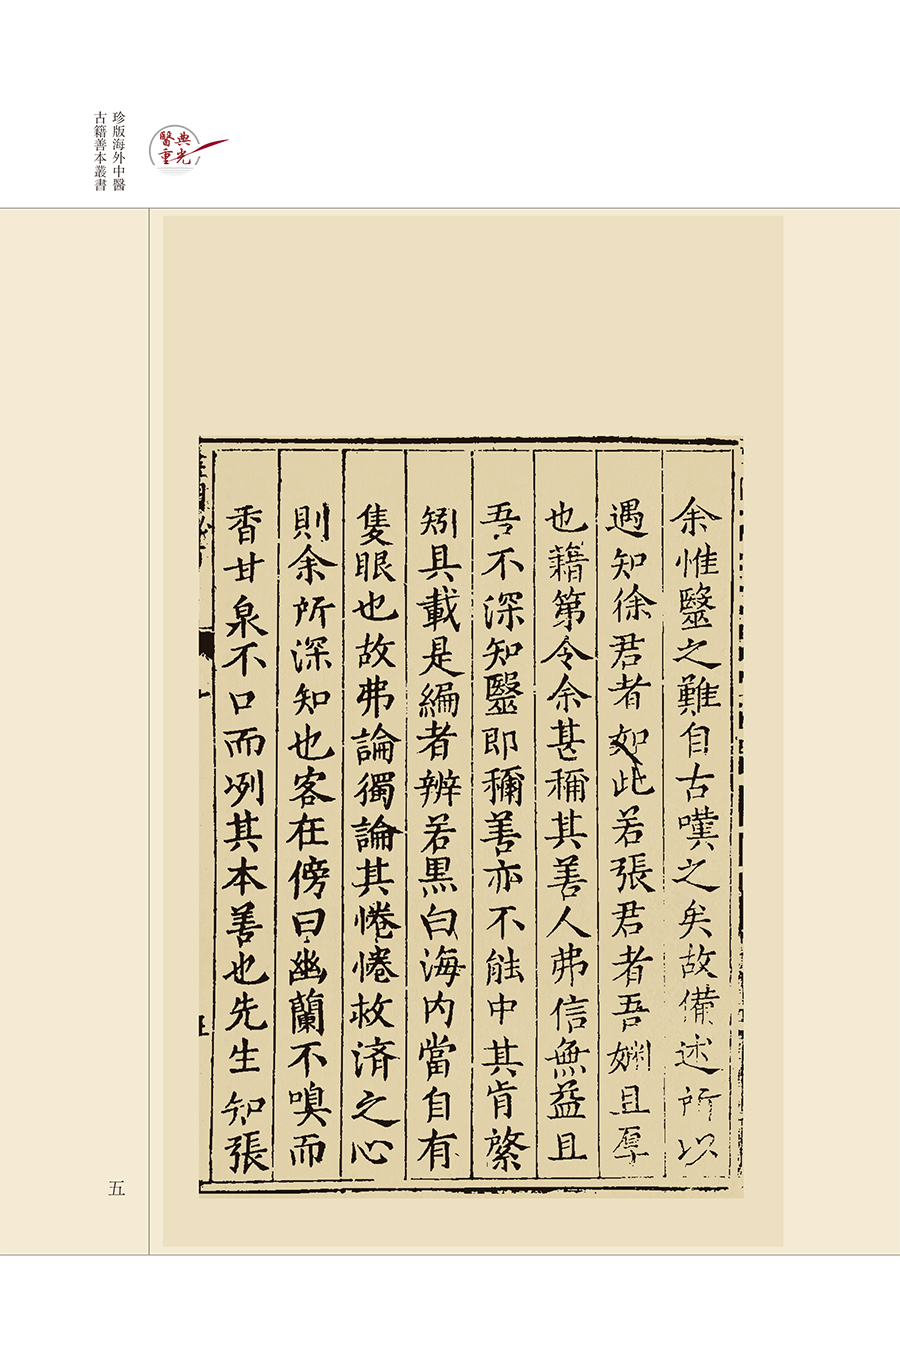 珍版海外中醫
古籍善本叢書
醫典
重光
余惟毉之難自古嘆之矣故備述所以
遇知徐君者如此若張君者吾姻且厚
也籍第令余甚稱其善人弗信無益且
吾不深知毉即稱善亦不能中其肯綮
矧具載是編者辨若黒白海内當自有
隻眼也故弗論獨論其惓惓救済之心
則余所深知也客在傍曰幽蘭不嗅而
香甘泉不口而冽其本善也先生知張
五